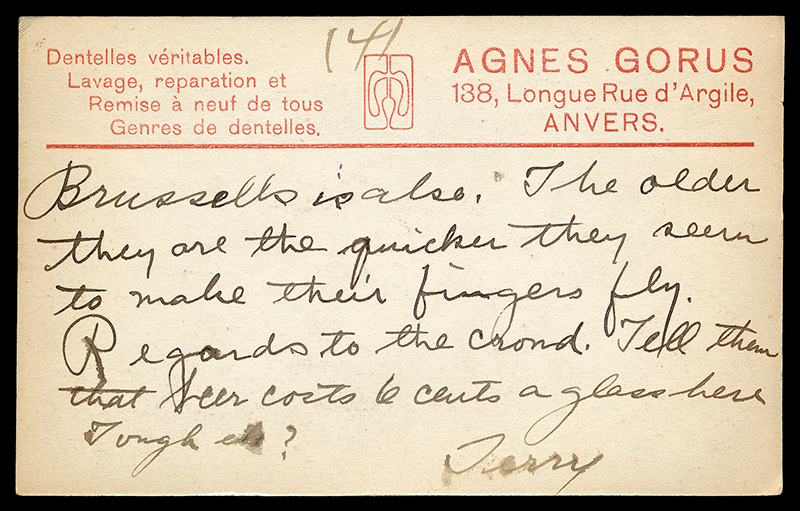 Dentelles véritables.
Lavage, reparation et
Remise à neuf de tous
Genres de dentelles.
(4)
AGNES GORUS
138, Longue Rue d'Argile,
ANVERS.
Brussells is also. The older
they are the quicker they seem
to make their fingers fly.
Regards to the crowd. Tell them
that beer costs 6 cents a glass here
Tough eh?
Terry